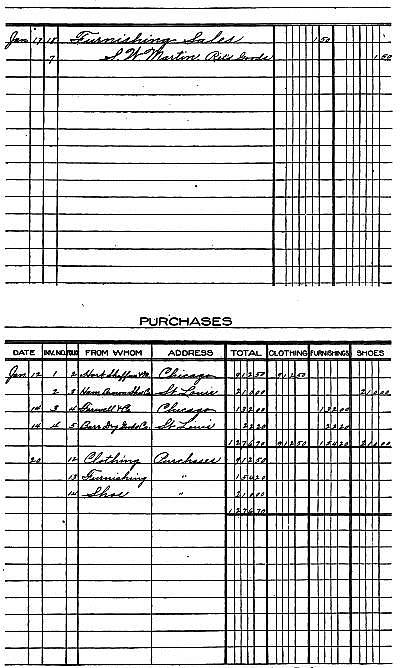 Jan 17 18 Furnishing Sales 1 50
7 S. W. Martin, Ret'd Goods 1 50
PURCHASES
DATE INV. NO. FOLIO FROM WHOM ADDRESS TOTAL CLOTHING FURNISHINGS SHOES
Jan 12 1 2 Hart Shaffner & M. Chicago 912 50 912 50
2 3 Ham Brown Shoe Co St Louis 210 00 210 00
14 3 4 Farwell & Co Chicago 132 00 132 00
14 4 5 Barr Dry Goods Co. St Louis 22 20 22 20
1276 70 912 50 154 20 210 00
20 12 Clothing Purchases 912 50
13 Furnishing " 154 20
14 Shoe " 210 00
1276 70